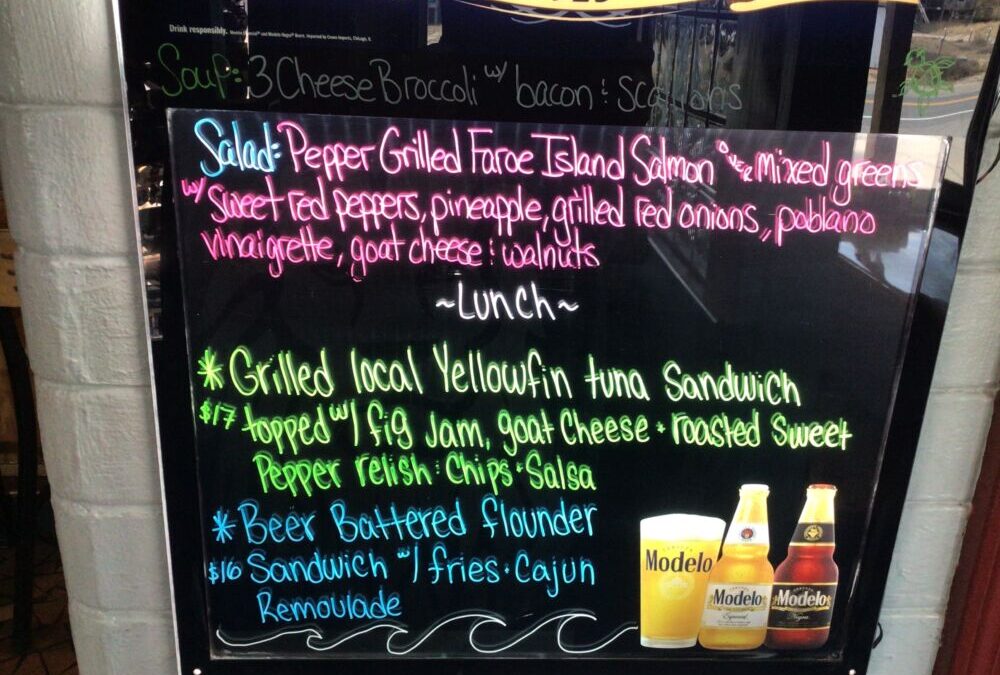 Drink responsibly.
Soup: 3 Cheese Broccoli w/ bacon & scallions
Salad: Pepper Grilled Faroe Island Salmon over mixed greens
w/ Sweet red peppers, pineapple, grilled red onions, poblano
vinaigrette, goat cheese & walnuts
~Lunch~
* Grilled local Yellowfin tuna Sandwich
$17 topped w/ fig Jam, goat Cheese + roasted Sweet
Pepper relish & Chips + Salsa
* Beer Battered flounder
$16 Sandwich w/ fries + Cajun
Remoulade
Modelo
Modelo
Especial
Modelo
Negra